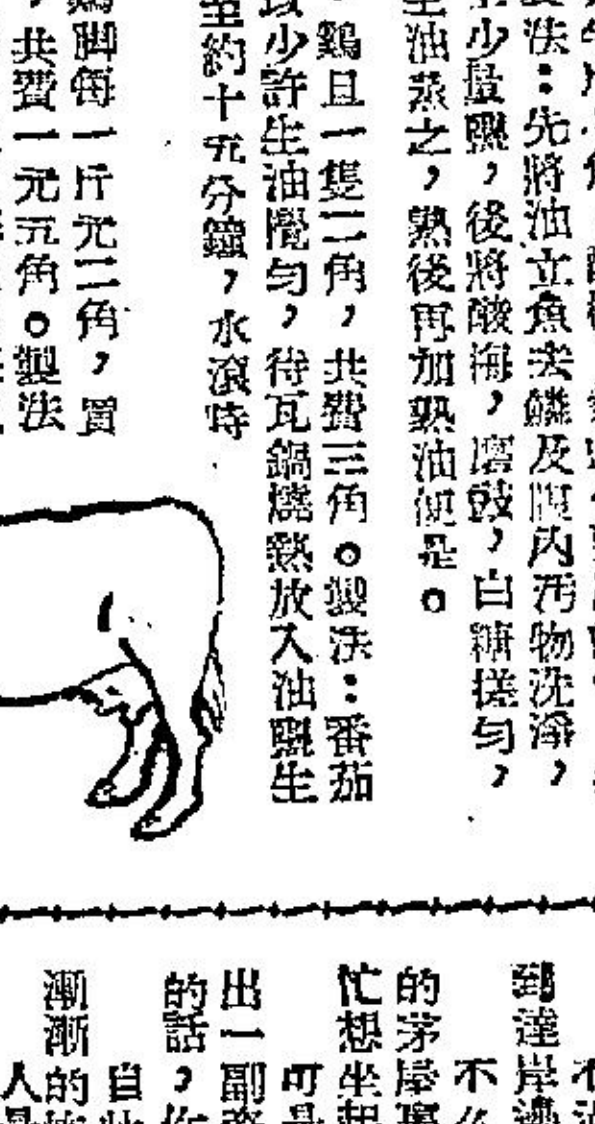 法：先將油立魚去鱗及肚內汚物洗淨，
少量鹽，後將酸梅，磨豉，白糖搓勻，
油蒸之，熟後再加熟油便是。
鷄旦一隻二角，共費三角。製法：番茄
少許生油攪勻，待瓦鍋燒熱放入油鹽生
約十五分鐘，水滾時
脚每一斤元二角，買
共費一元五角。製法
到達岸邊
不
的茅屋裏
忙想坐起
可是
出一副
的話，你
自
漸漸的
人是